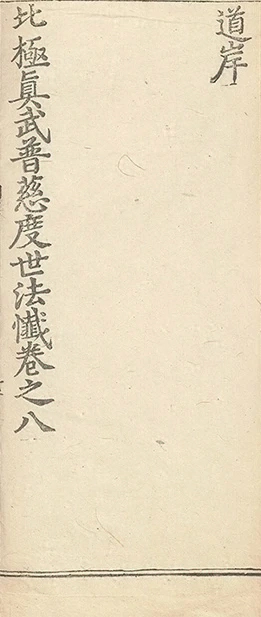 道岸
北極眞武普慈度世法懺卷之八